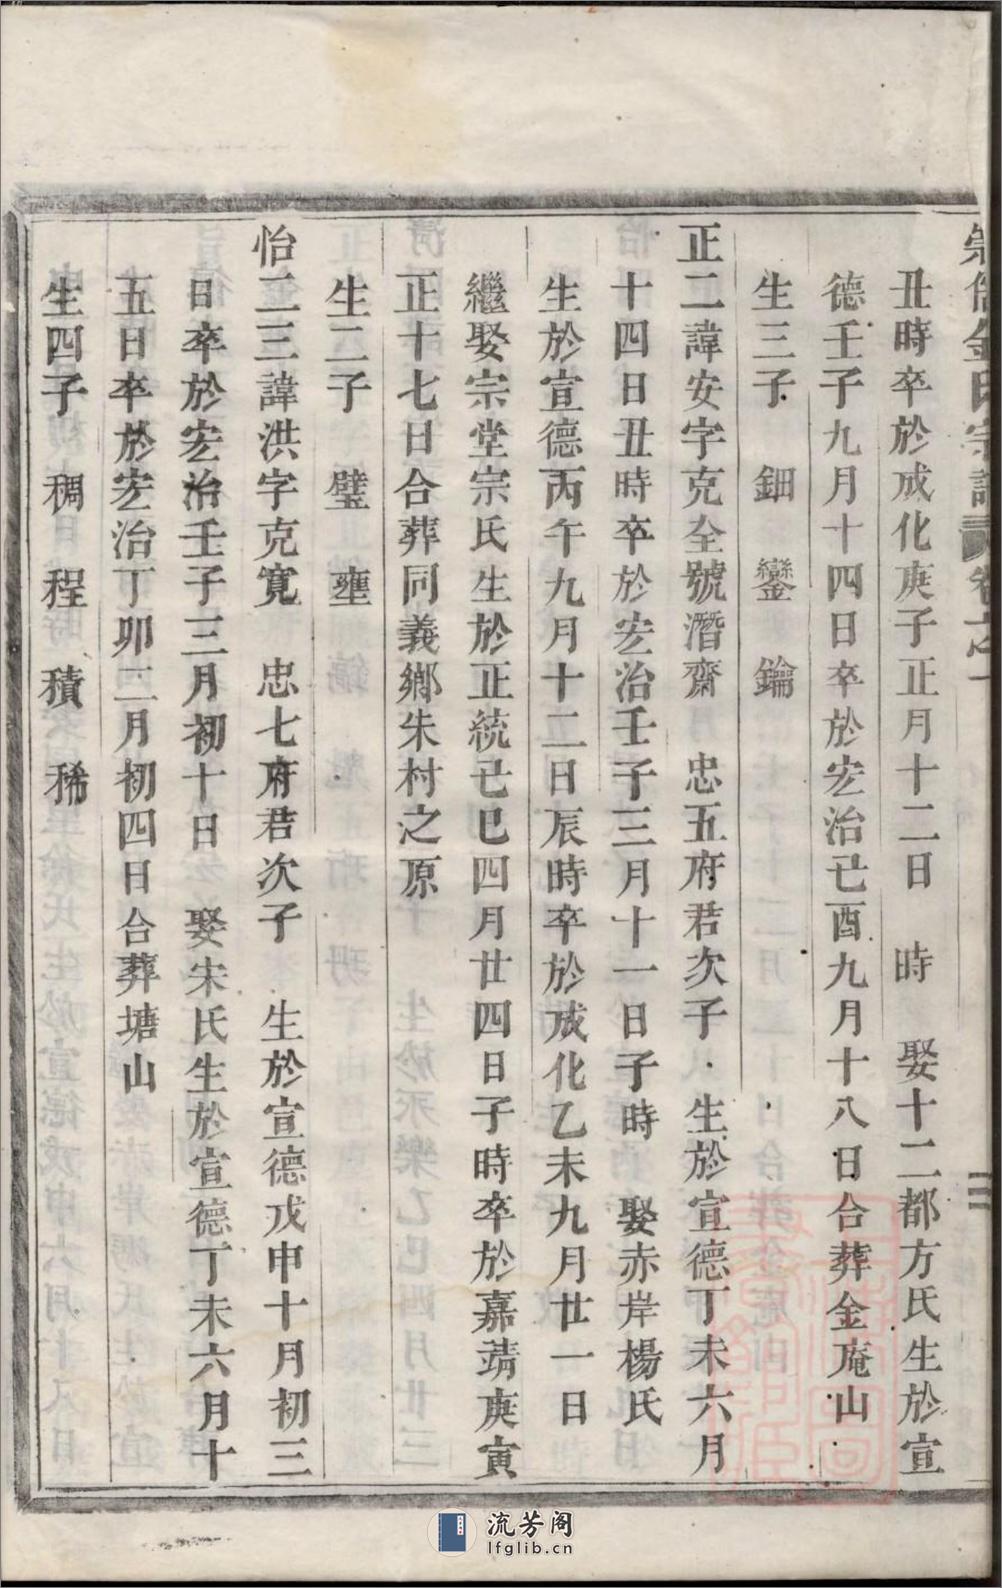 丑時卒於成化庚子正月十二日　時　娶十二都方氏生於宣
德壬子九月十四日卒於宏治己酉九月十八日合葬金庵山
生三子　鈿　鑾　鑰
正二諱安字克全號潛齋　忠五府君次子　生於宣德丁未六月
十四日丑時卒於宏治壬子三月十一日子時　娶赤岸楊氏
生於宣德丙午九月十二日辰時卒於成化乙未九月廿一日
繼娶宗堂宗氏生於正統己巳四月廿四日子時卒於嘉靖庚寅
正十七日合葬同義鄉朱村之原
生二子　璧　壅
怡二三諱洪字克寬　忠七府君次子　生於宣德戊申十月初三
日卒於宏治壬子三月初十日　娶宋氏生於宣德丁未六月十
五日卒於宏治丁卯二月初四日合葬塘山
生四子　稠　程　積　稀
流芳阁
lfglib.cn